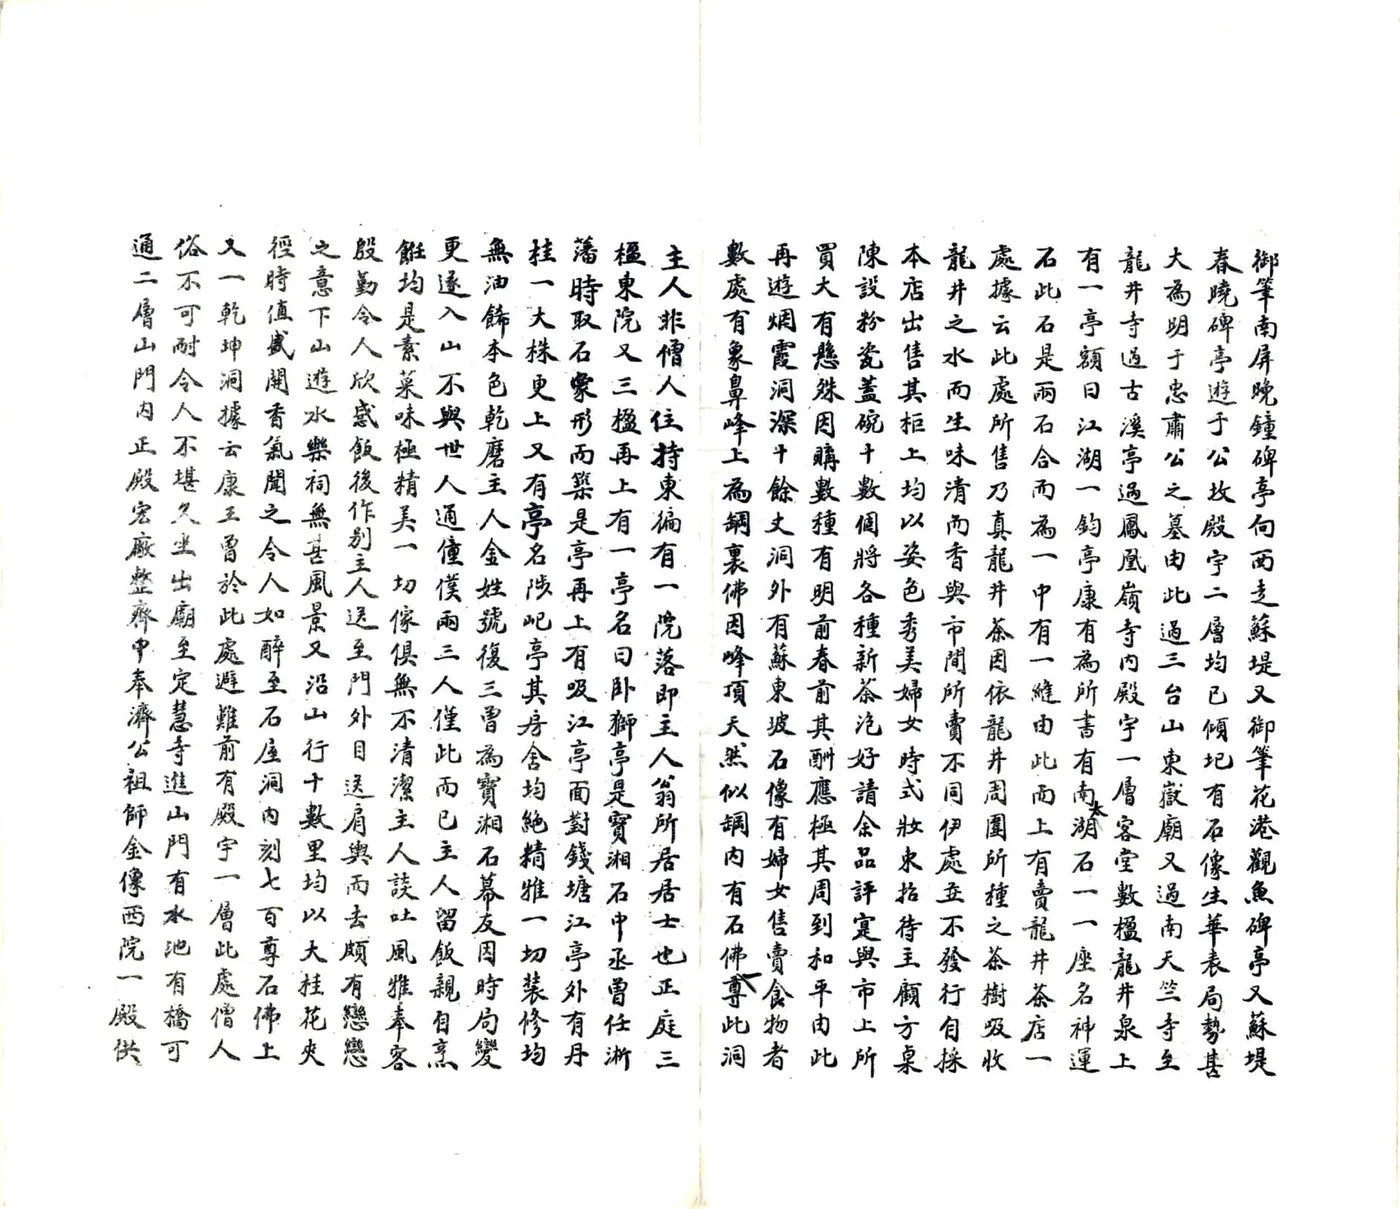 御筆南屏晚鐘碑亭向西走蘇堤又御筆花港觀魚碑亭又蘇堤
春曉碑亭遊于公坟殿宇二層均已傾圯有石像生華表局勢甚
大為明于忠肅公之墓由此過三台山東嶽廟又過南天竺寺至
龍井寺過古溪亭過鳳凰嶺寺內殿宇一層客堂數楹龍井泉上
有一亭額曰江湖一鈞亭康有為所書有南太湖石一一座名神運
石此石是兩石合而為一中有一縫由此而上有賣龍井茶店一
處據云此處所售乃真龍井茶因依龍井周圍所種之茶樹吸收
龍井之水而生味清而香與市間所賣不同伊處並不發行自採
本店出售其柜上均以姿色秀美婦女時式妝束招待主顧方桌
陳設粉瓷蓋碗十數個將各種新茶泡好請余品評寔與市上所
買大有懸殊因購數種有明前春前其酬應極其周到和平由此
再遊烟霞洞深十餘丈洞外有蘇東坡石像有婦女售賣食物者
數處有象鼻峰上為鍋裏佛因峰頂天然似鍋內有石佛尊此洞
主人非僧人住持東徧有一院落即主人翁所居居士也正庭三
楹東院又三楹再上有一亭名曰卧獅亭是寶湘石中丞曾任淅
藩時取石象形而築是亭再上有吸江亭面對錢塘江亭外有丹
桂一大株更上又有亭名陟屺亭其房舍均絕精雅一切裝修均
無油飾本色乾磨主人金姓號復三曾為寶湘石幕友因時局變
更遂入山不與世人通僮僕兩三人僅此而已主人留飯親自烹
飪均是素菜味極精美一切傢俱無不清潔主人談吐風雅奉客
殷勤令人欣感飯後作别主人送至門外目送肩輿而去頗有戀戀
之意下山遊水樂祠無甚風景又沿山行十數里均以大桂花夾
徑時值盛開香氣聞之令人如醉至石屋洞內刻七百尊石佛上
又一乾坤洞據云康王曾於此處避難前有殿宇一層此處僧人
俗不可耐令人不堪久坐出廟至定慧寺進山門有水池有橋可
通二層山門內正殿宏厰整齊中奉濟公祖師金像西院一殿供